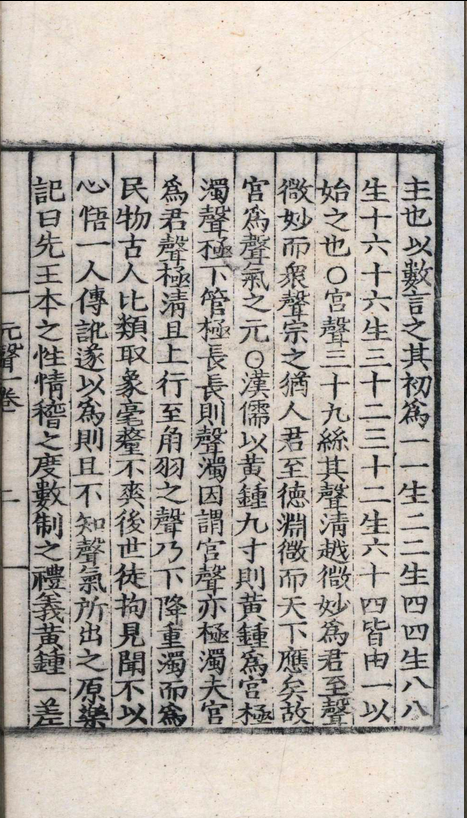 主也以數言之其初爲一一生二二生四四生八八
生十六十六生三十二三十二生六十四皆由一以
始之也〇宮聲三十九絲其聲清越微妙爲君至聲
微妙而衆聲宗之猶人君至德淵微而天下應矣故
宮爲聲氣之元〇漢儒以黃鍾九寸則黃鍾爲宮極
濁聲極下管極長長則聲濁因謂宮聲亦極濁夫宮
爲君聲極清且上行至角羽之聲乃下降重濁而爲
民物古人比類取象毫釐不爽後世徒拘見聞不以
心悟一人傳訛遂以爲則且不知聲氣所出之原樂
記曰先王本之性情稽之度數制之禮義黃鍾一差
元聲一卷 二